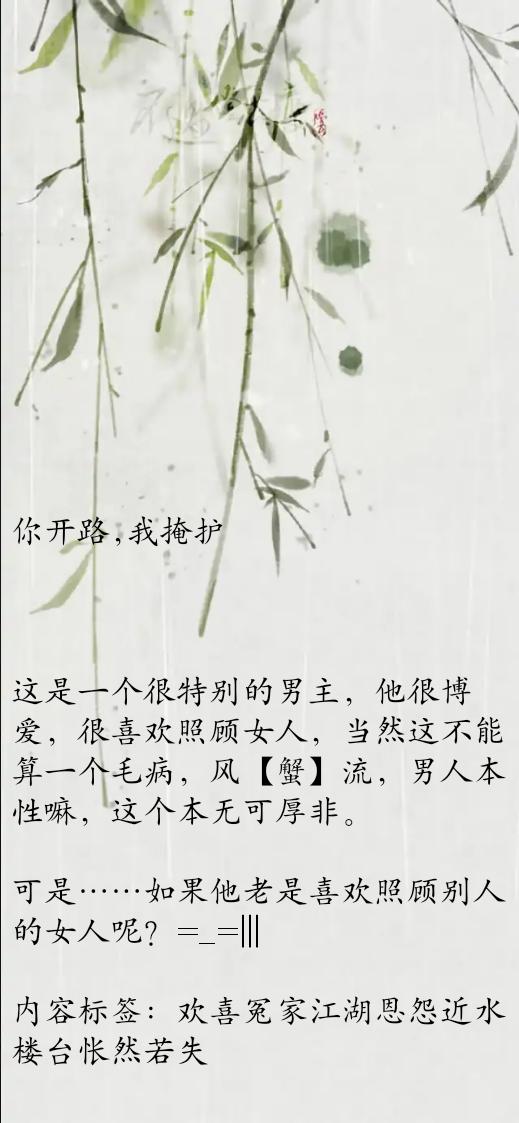 你开路,我掩护
这是一个很特别的男主，他很博
爱，很喜欢照顾女人，当然这不能
算一个毛病，风【蟹】流，男人本
性嘛，这个本无可厚非。
可是……如果他老是喜欢照顾别人
的女人呢？=_=|||
内容标签：欢喜冤家江湖恩怨近水
楼台怅然若失